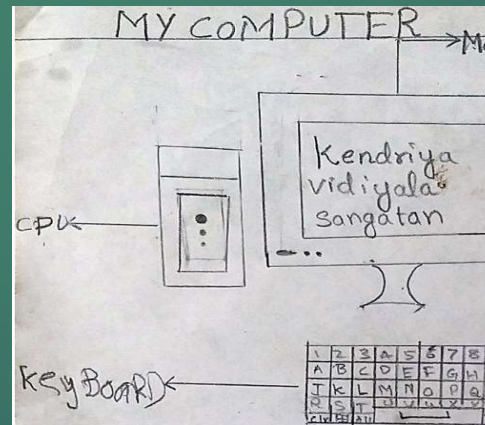 MY COMPUTER
Kendriya
vidiyala
sangatan
CPU
KeyBoaRD
1 2 3 4 5 6 7 8
A B C D E F G H
I K L M N O P Q
R S T U V